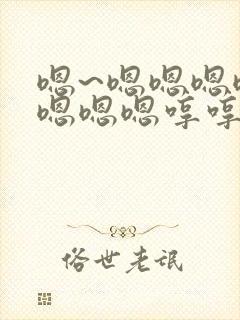 嗯~嗯嗯嗯
嗯嗯嗯哼哼
俗世老氓